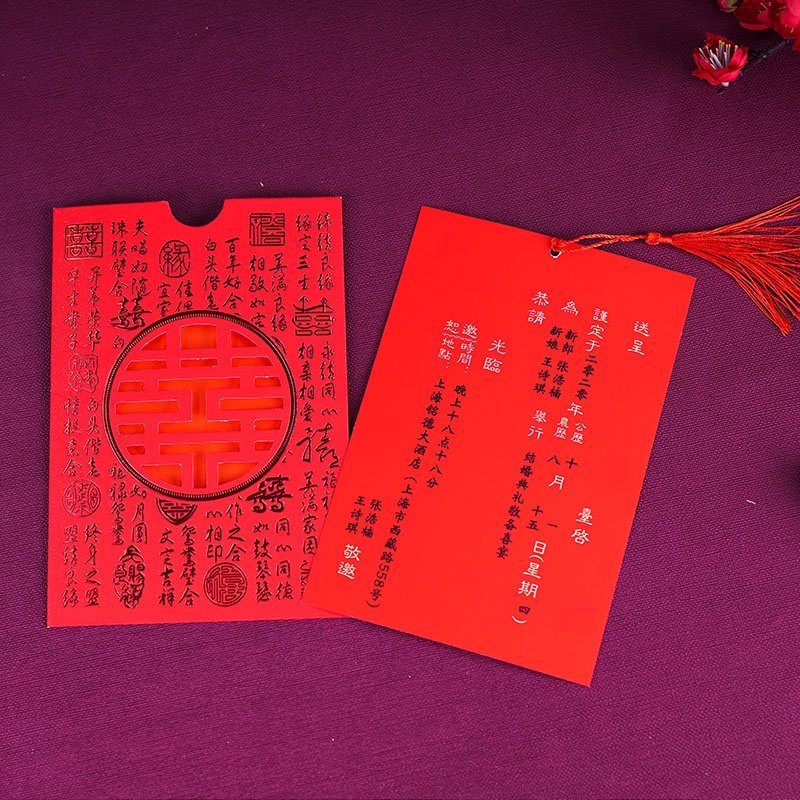 送呈 臺啓
謹定于二零二零年 公歷 十 月 一 日(星期 四)
農歷 八 十五
為 新郎 张浩楠 舉行 结婚典礼敬备喜宴
新娘 王诗琪
恭請
光臨
邀 時間: 晚上十八点十八分
恕 地點: 上海铭德大酒店(上海市西藏路558号)
张浩楠 敬邀
王诗琪
缘结良缘
缘定三生
永结同心
相亲相爱
美满良缘
相敬如宾
美满家园
百年好合
白头偕老
同心同德
如鼓琴瑟
作之合
心相印
夫唱妇随
珠联璧合
鸳鸯璧合
文定吉祥
白头偕老
情投意合
早生贵子
终身之盟
盟结良缘
囍